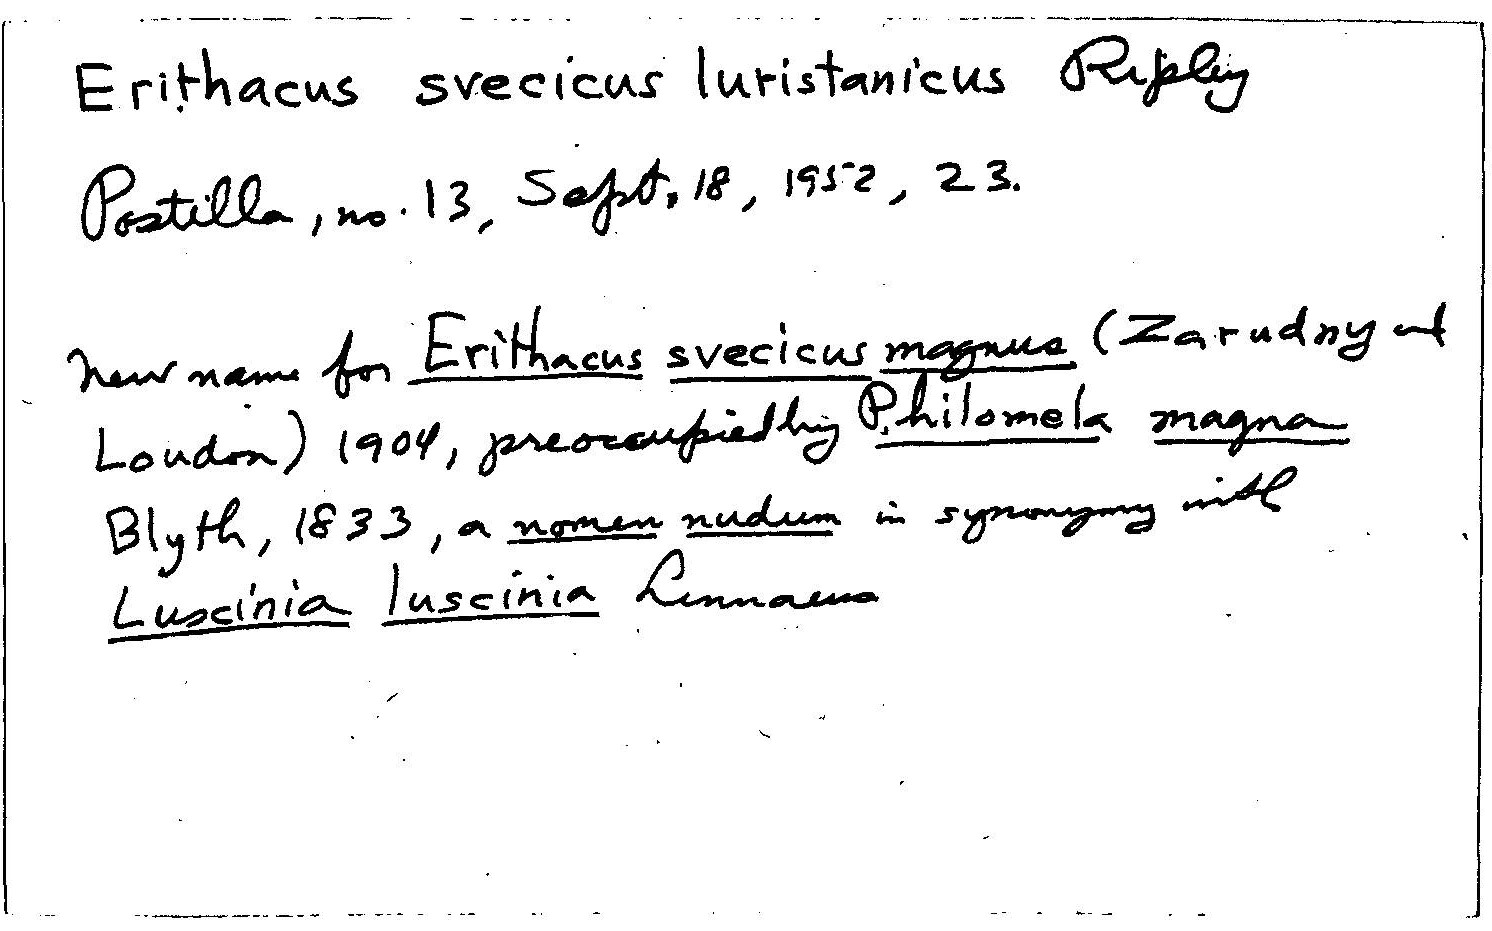 Erithacus svecicus luristanicus Ripley
Postilla, no. 13, Sept. 18, 1952, 23.
New name for Erithacus svecicus magnus (Zarudny and
Loudon) 1904, preoccupied by Philomela magna
Blyth, 1833, a nomen nudum in synonymy with
Luscinia luscinia Linnaeus